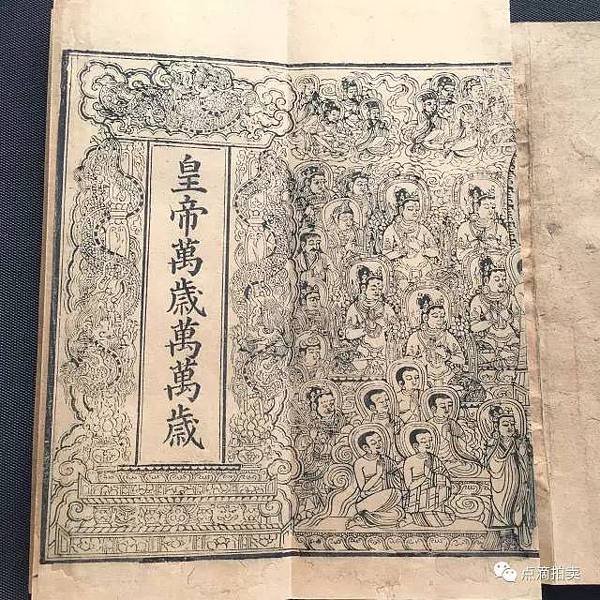 皇帝萬歳萬萬歳
点滴拍卖